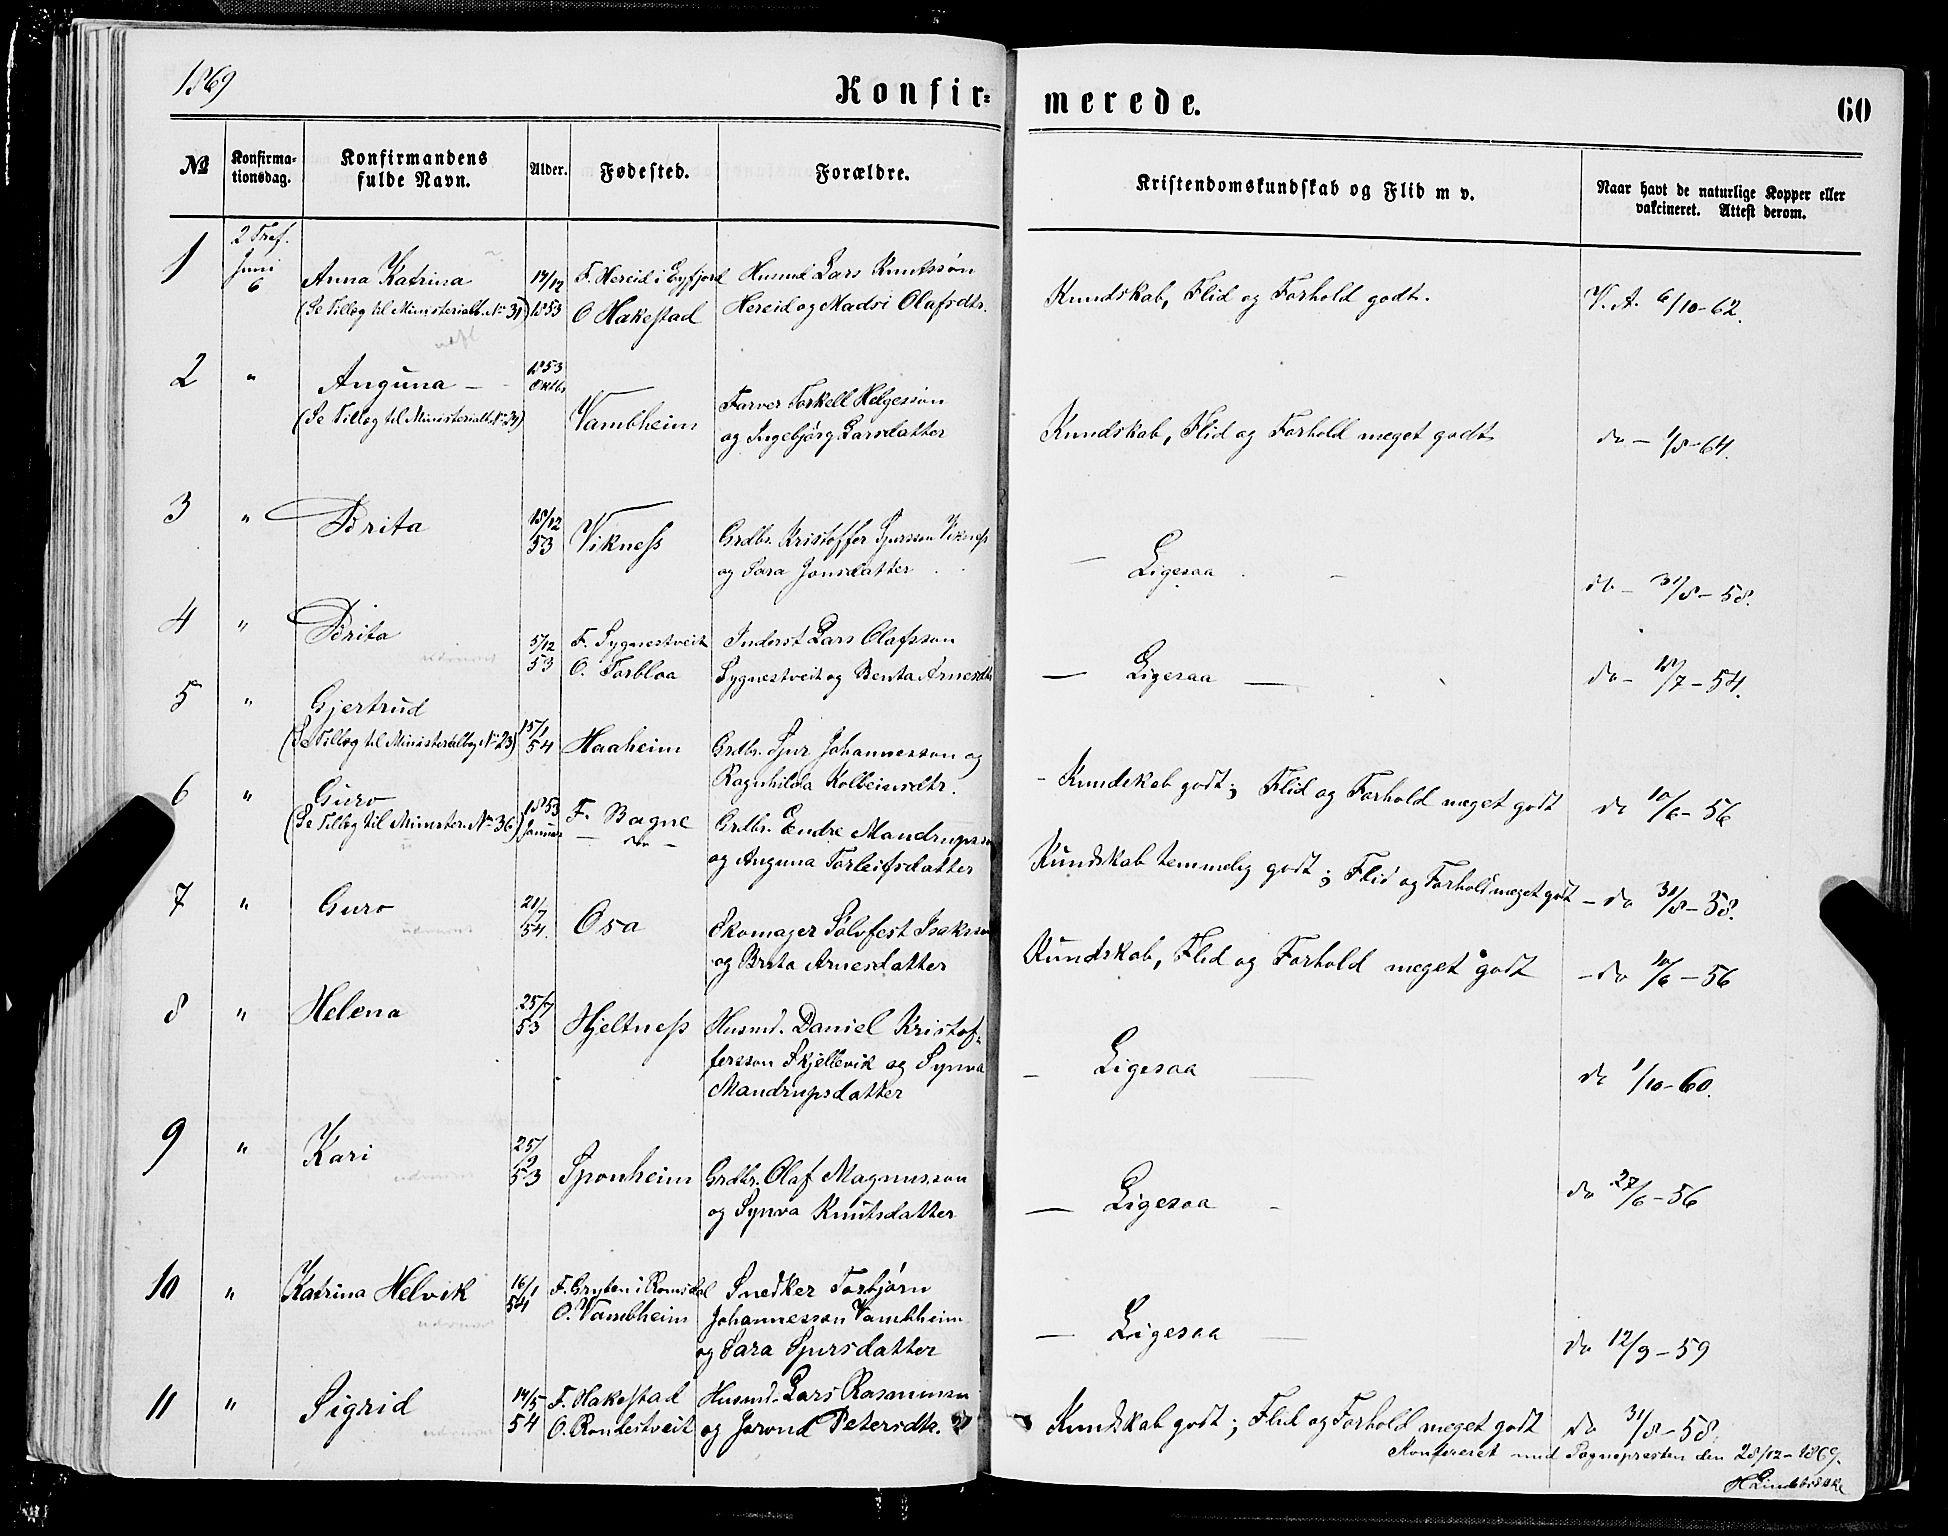 1869
Konfir= merede.
60
No
Konfirma-
tionsdag.
Konfirmandens
fulde Navn.
Alder.
Fødested.
Forældre.
Kristendomskundskab og Flid m v.
Naar havt de naturlige Kopper eller
vakcineret. Attest derom.
1
2 Tref.
Juni
6
Anna Katrina
(Se Tillæg til Ministerialb. No 31)
14/12
1853
F. Hereid i Eyfjord
O Hakestad
Husmd Lars Knutssön
Hereid og Madsi Olafsdtr.
Kundskab, Flid og Forhold godt.
V. A. 6/10-62.
2
"
Anguna -
(Se Tillæg til Ministerialb. No 24)
1853
Oktbr
Vambheim
Farver Torkell Helgesson
og Ingebjörg Larsdatter
Kundskab, Flid og Forhold meget godt
do - 1/8-64.
3
"
Brita
15/12
53
Vikness
Grdbr. Kristoffer Sjursson Vikness
og Sara Jonsdatter
- Ligesaa -
do - 31/8-58.
4
"
Brita
5/12
53
F. Sygnestveit
O. Torbloa
Inderst Lars Olafsson
Sygnestveit og Benta Arnesdtr
- Ligesaa -
do - 12/7-54.
5
"
Gjertrud
(Se Tillæg til Ministerialbog No 23)
15/1
54
Haaheim
Grdbr. Sjur Johannesson og
Ragnhilda Kolbeinsdtr.
- Kundskab godt; Flid og Forhold meget godt
do 10/6-56
6
"
Guro
(Se Tillæg til Minister. No 36)
1853
Januar
F. Bagne
- do -
Grdbr. Endre Mandrupsson
og Anguna Torleifsdatter
Kundskab temmelig godt; Flid og Forhold meget godt
- do 31/8-58.
7
"
Guro
21/7
54.
Osa
Skomager Sölvfest Isaksson
og Brita Arnesdatter
Kundskab, Flid og Forhold meget godt
- do 10/6-56
8
"
Helena
25/7
53
Hjeltness
Husmd. Daniel Kristof-
fersson Skjellevik og Synva
Mandrupsdatter
- Ligesaa -
do 1/10-60.
9
"
Kari
25/9
53
Sponheim
Grdbr. Olaf Magnusson
og Synva Knutsdatter
- Ligesaa -
do 27/6-56
10
"
Katrina Helvik
16/1
54
F. Gryten i Romsdal
O. Vambheim
Snedker Torbjörn
Johannesson Vambheim
og Sara Sjursdatter
- Ligesaa -
do 12/9-59
11
"
Sigrid
14/5
54
F. Hakestad
O. Ronhestveit
Husmd. Lars Rasmussen
og Jorond Petersdtr.
Kundskab godt; Flid og Forhold meget godt
do 31/8-58.
Konfereret med Sognepresten den 28/12-1869.